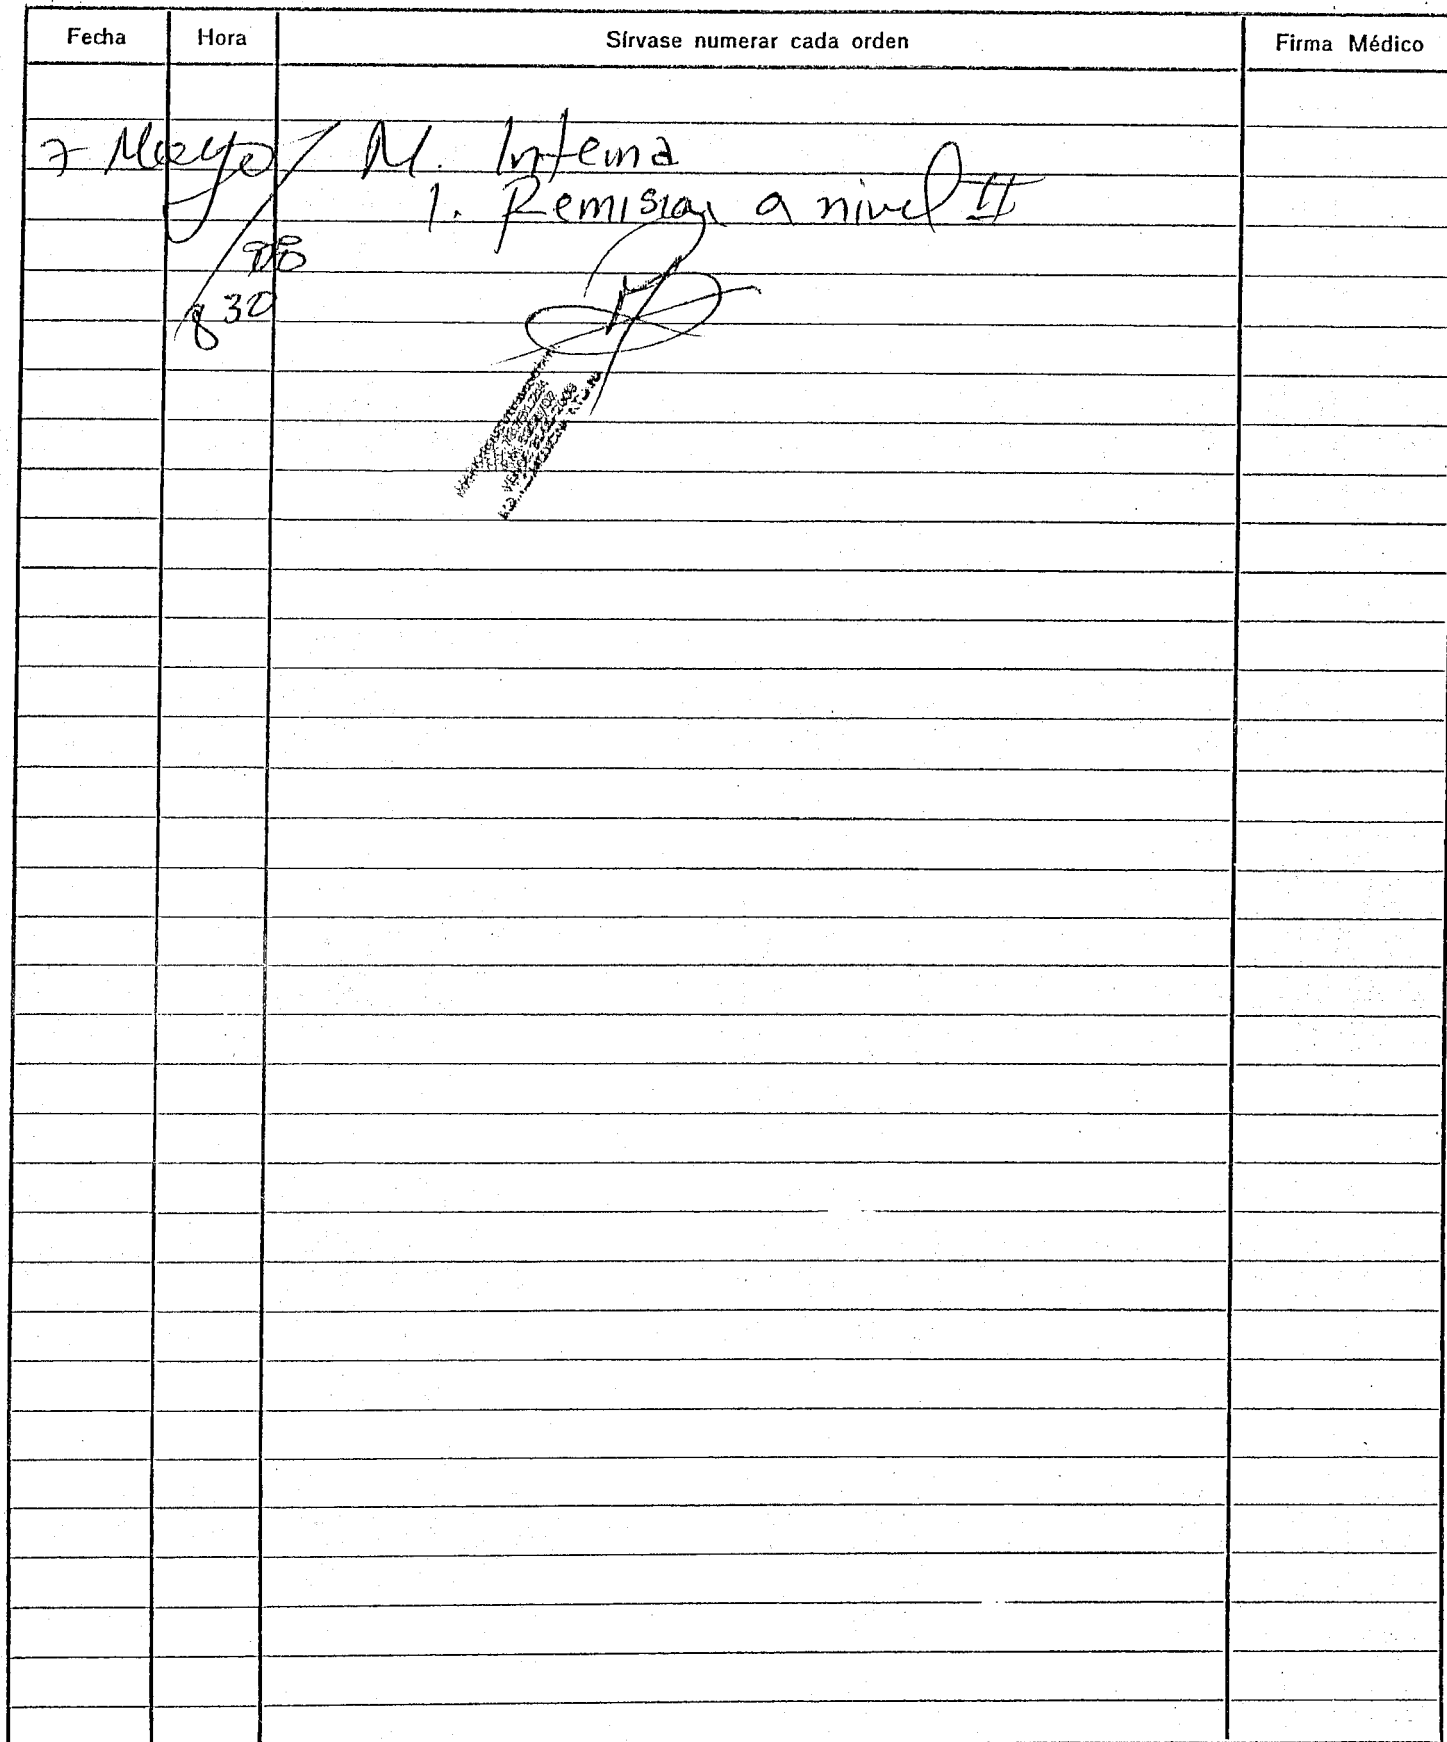 Fecha Hora Sírvase numerar cada orden Firma Médico
7 Mayo / M. Interna
1. Remision a nivel II
8 30